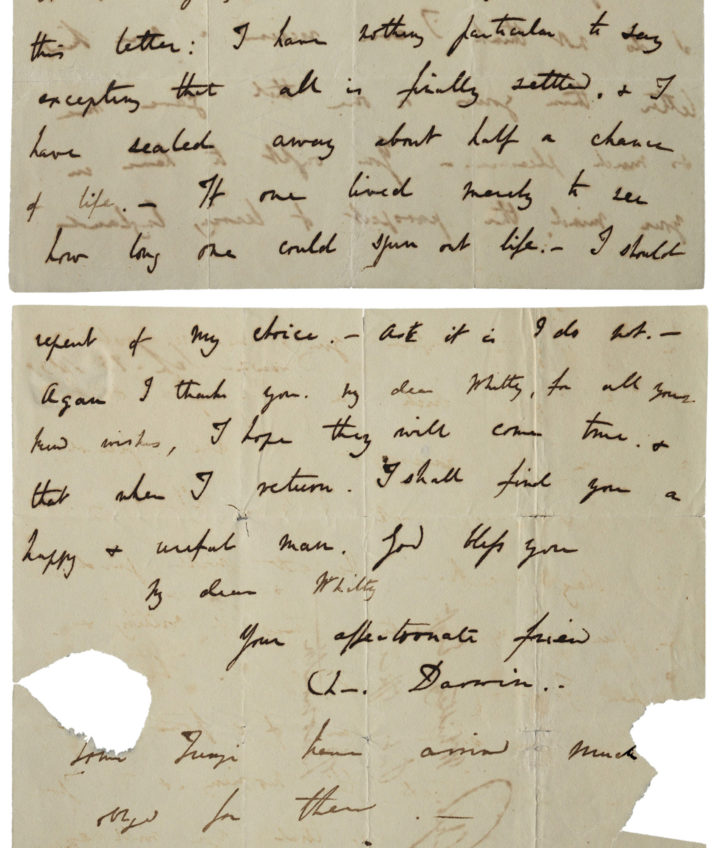 this letter: I have nothing particular to say
excepting that all is finally settled, & I
have sealed away about half a chance
of life. — If one lived merely to see
how long one could spin out life. — I should
repent of my choice. — As it is I do not. —
Again I thank you. my dear Whitley, for all your
kind wishes, I hope they will come true. &
that when I return. I shall find you a
happy & useful man. God bless you
My dear Whitley
Your affectionate friend
Ch. Darwin. .
some Fungi have arrived much
obliged for them. —